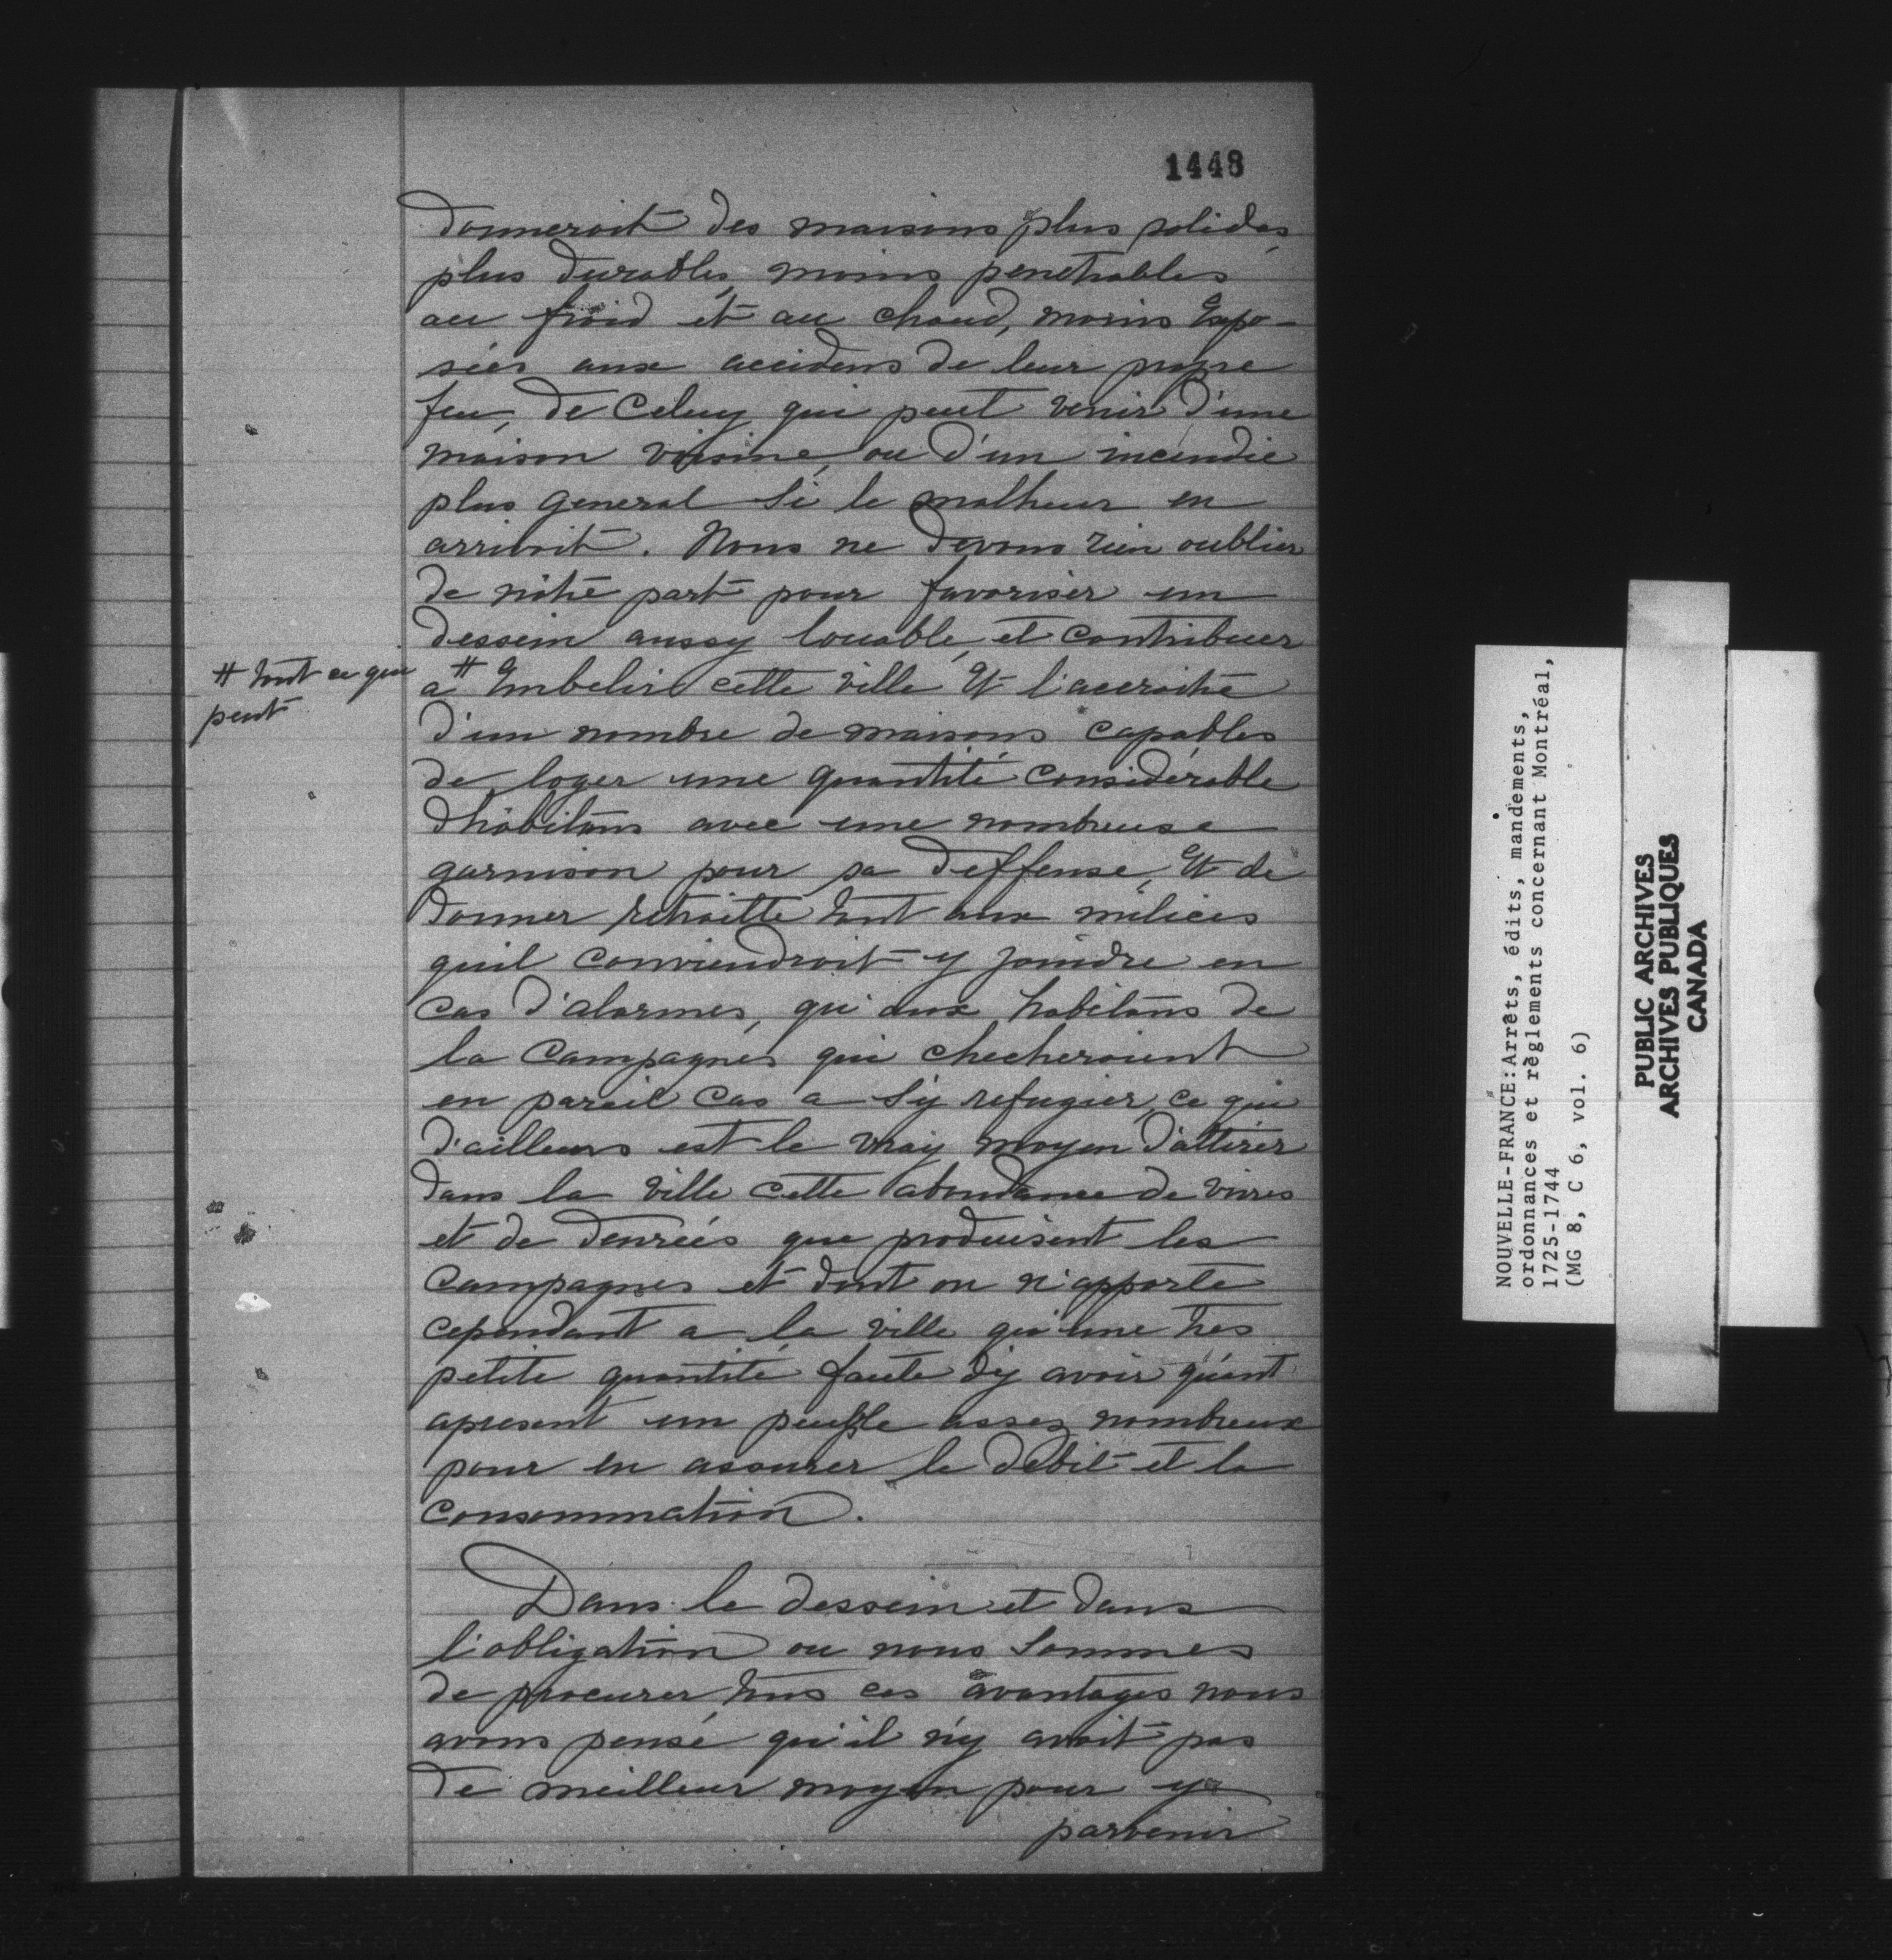 1448
donneroit des maisons plus solides,
plus durables, moins penetrables
au froid et au chaud, moins Expo-
sées aux accidens de leur propre
feu, de Celuy qui peut venir d'une
maison voisine, ou d'un incendie
plus general si le malheur en
arrivoit. Nous ne devons rien oublier
de nôtre part pour favoriser un
dessein aussy louable, et contribuer
# tout ce qui
peut
a # Embelir cette ville Et l'accroitre
d'un nombre de maisons capables
de loger une quantité considérable
d'habitans avec une nombreuse
garnison pour sa deffense, Et de
donner retraitte tant aux milices
quil conviendroit y joindre en
cas d'alarmes, qu'aux habitans de
la Campagnes qui checheroient
en pareil Cas a s'y refugier, ce qui
d'ailleurs est le vray moyen d'attirer
dans la ville cette abondance de vivres
et de denrées que produisent les
Campagnes et dont on n'apporte
cependant a la ville qu'une tres
petite quantité faute d'y avoir quant
apresent un peuple assez nombreux
pour en assurer le debit et la
Consommation.
Dans le dessein et dans
l'obligation ou nous sommes
de procurer tous ces avantages nous
avons pensé qu'il n'y avoit pas
de meilleur moyen pour y
parvenir
NOUVELLE-FRANCE: Arrêts, édits, mandements,
ordonnances et règlements concernant Montréal,
1725-1744
(MG 8, C 6, vol. 6)
PUBLIC ARCHIVES
ARCHIVES PUBLIQUES
CANADA